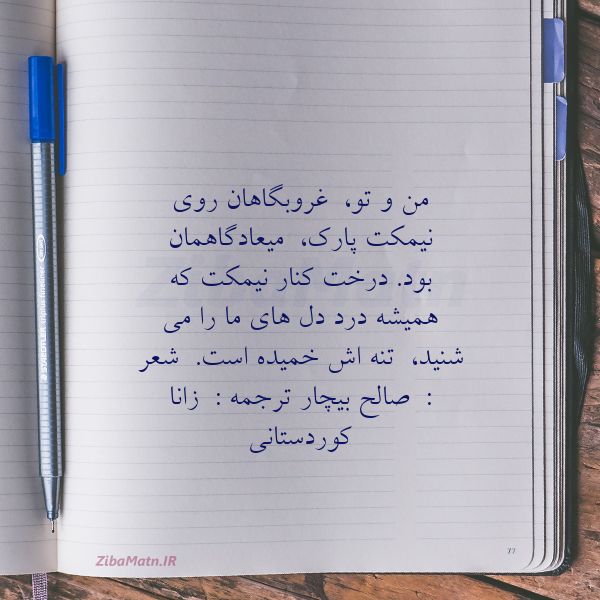 من و تو، غروبگاهان روی
نیمکت پارک، میعادگاهمان
بود. درخت کنار نیمکت که
همیشه درد دل های ما را می
شنید، تنه اش خمیده است. شعر
: صالح بیچار ترجمه : زانا
کوردستانی
77
ZibaMatn.IR